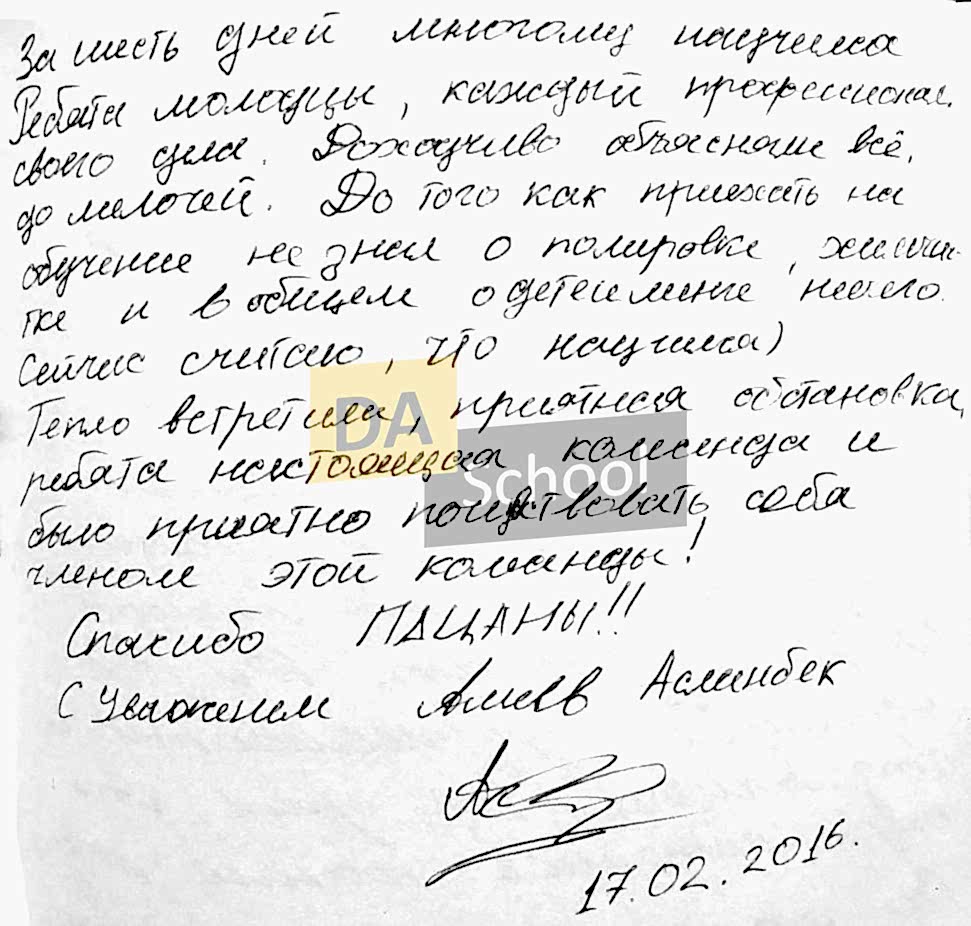 За шесть дней многому научился
Ребята молодцы, каждый профессионал
своего дела. Доходчиво объясняли всё,
до мелочей. До того как приехать на
обучение не знал о полировке, химчис-
тке и в общем о детейлинге ничего.
Сейчас считаю, что научился)
Тепло встретили, приятная обстановка,
ребята настоящая команда и
было приятно почувствовать себя
членом этой команды!
Спасибо ПАЦАНЫ!!
С Уважением Алиев Асланбек
17.02.2016.
DA
School